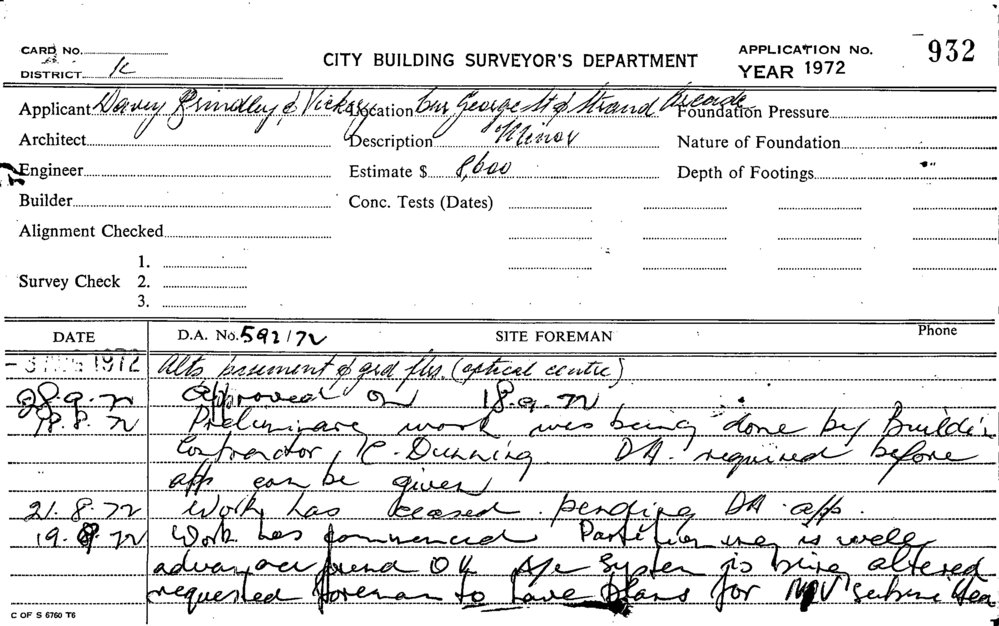 CARD NO.
DISTRICT K
CITY BUILDING SURVEYOR'S DEPARTMENT
APPLICATION No. 932
YEAR 1972
Applicant Davey Brindley & Vickery Location Cnr George St & Strand Arcade Foundation Pressure
Architect Description Minor Nature of Foundation
Engineer Estimate $ 8,600 Depth of Footings
Builder Conc. Tests (Dates)
Alignment Checked
1.
Survey Check 2.
3.
DATE D.A. No. 592/72 SITE FOREMAN Phone
1972 Alts basement & grd flrs. (optical centre)
28.9.72 Approved on 18.9.72
18.8.72 Preliminary work was being done by Buildin
Contractor, C. Dunning. DA. required before
app can be given
21.8.72 Work has ceased. pending DA app.
19.9.72 Work has commenced Partitioning is well
advanced found OK A/c System is being altered
requested foreman to have plans for MV submitted
C OF S 6760 T6